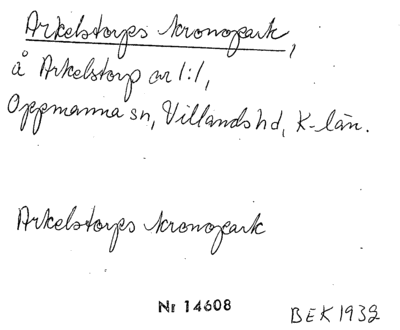 Arkelstorps kronopark,
å Arkelstorp cr 1:1,
Oppmanna sn, Villands hd, K-län.
Arkelstorps kronopark
Nr 14608
BEK 1932